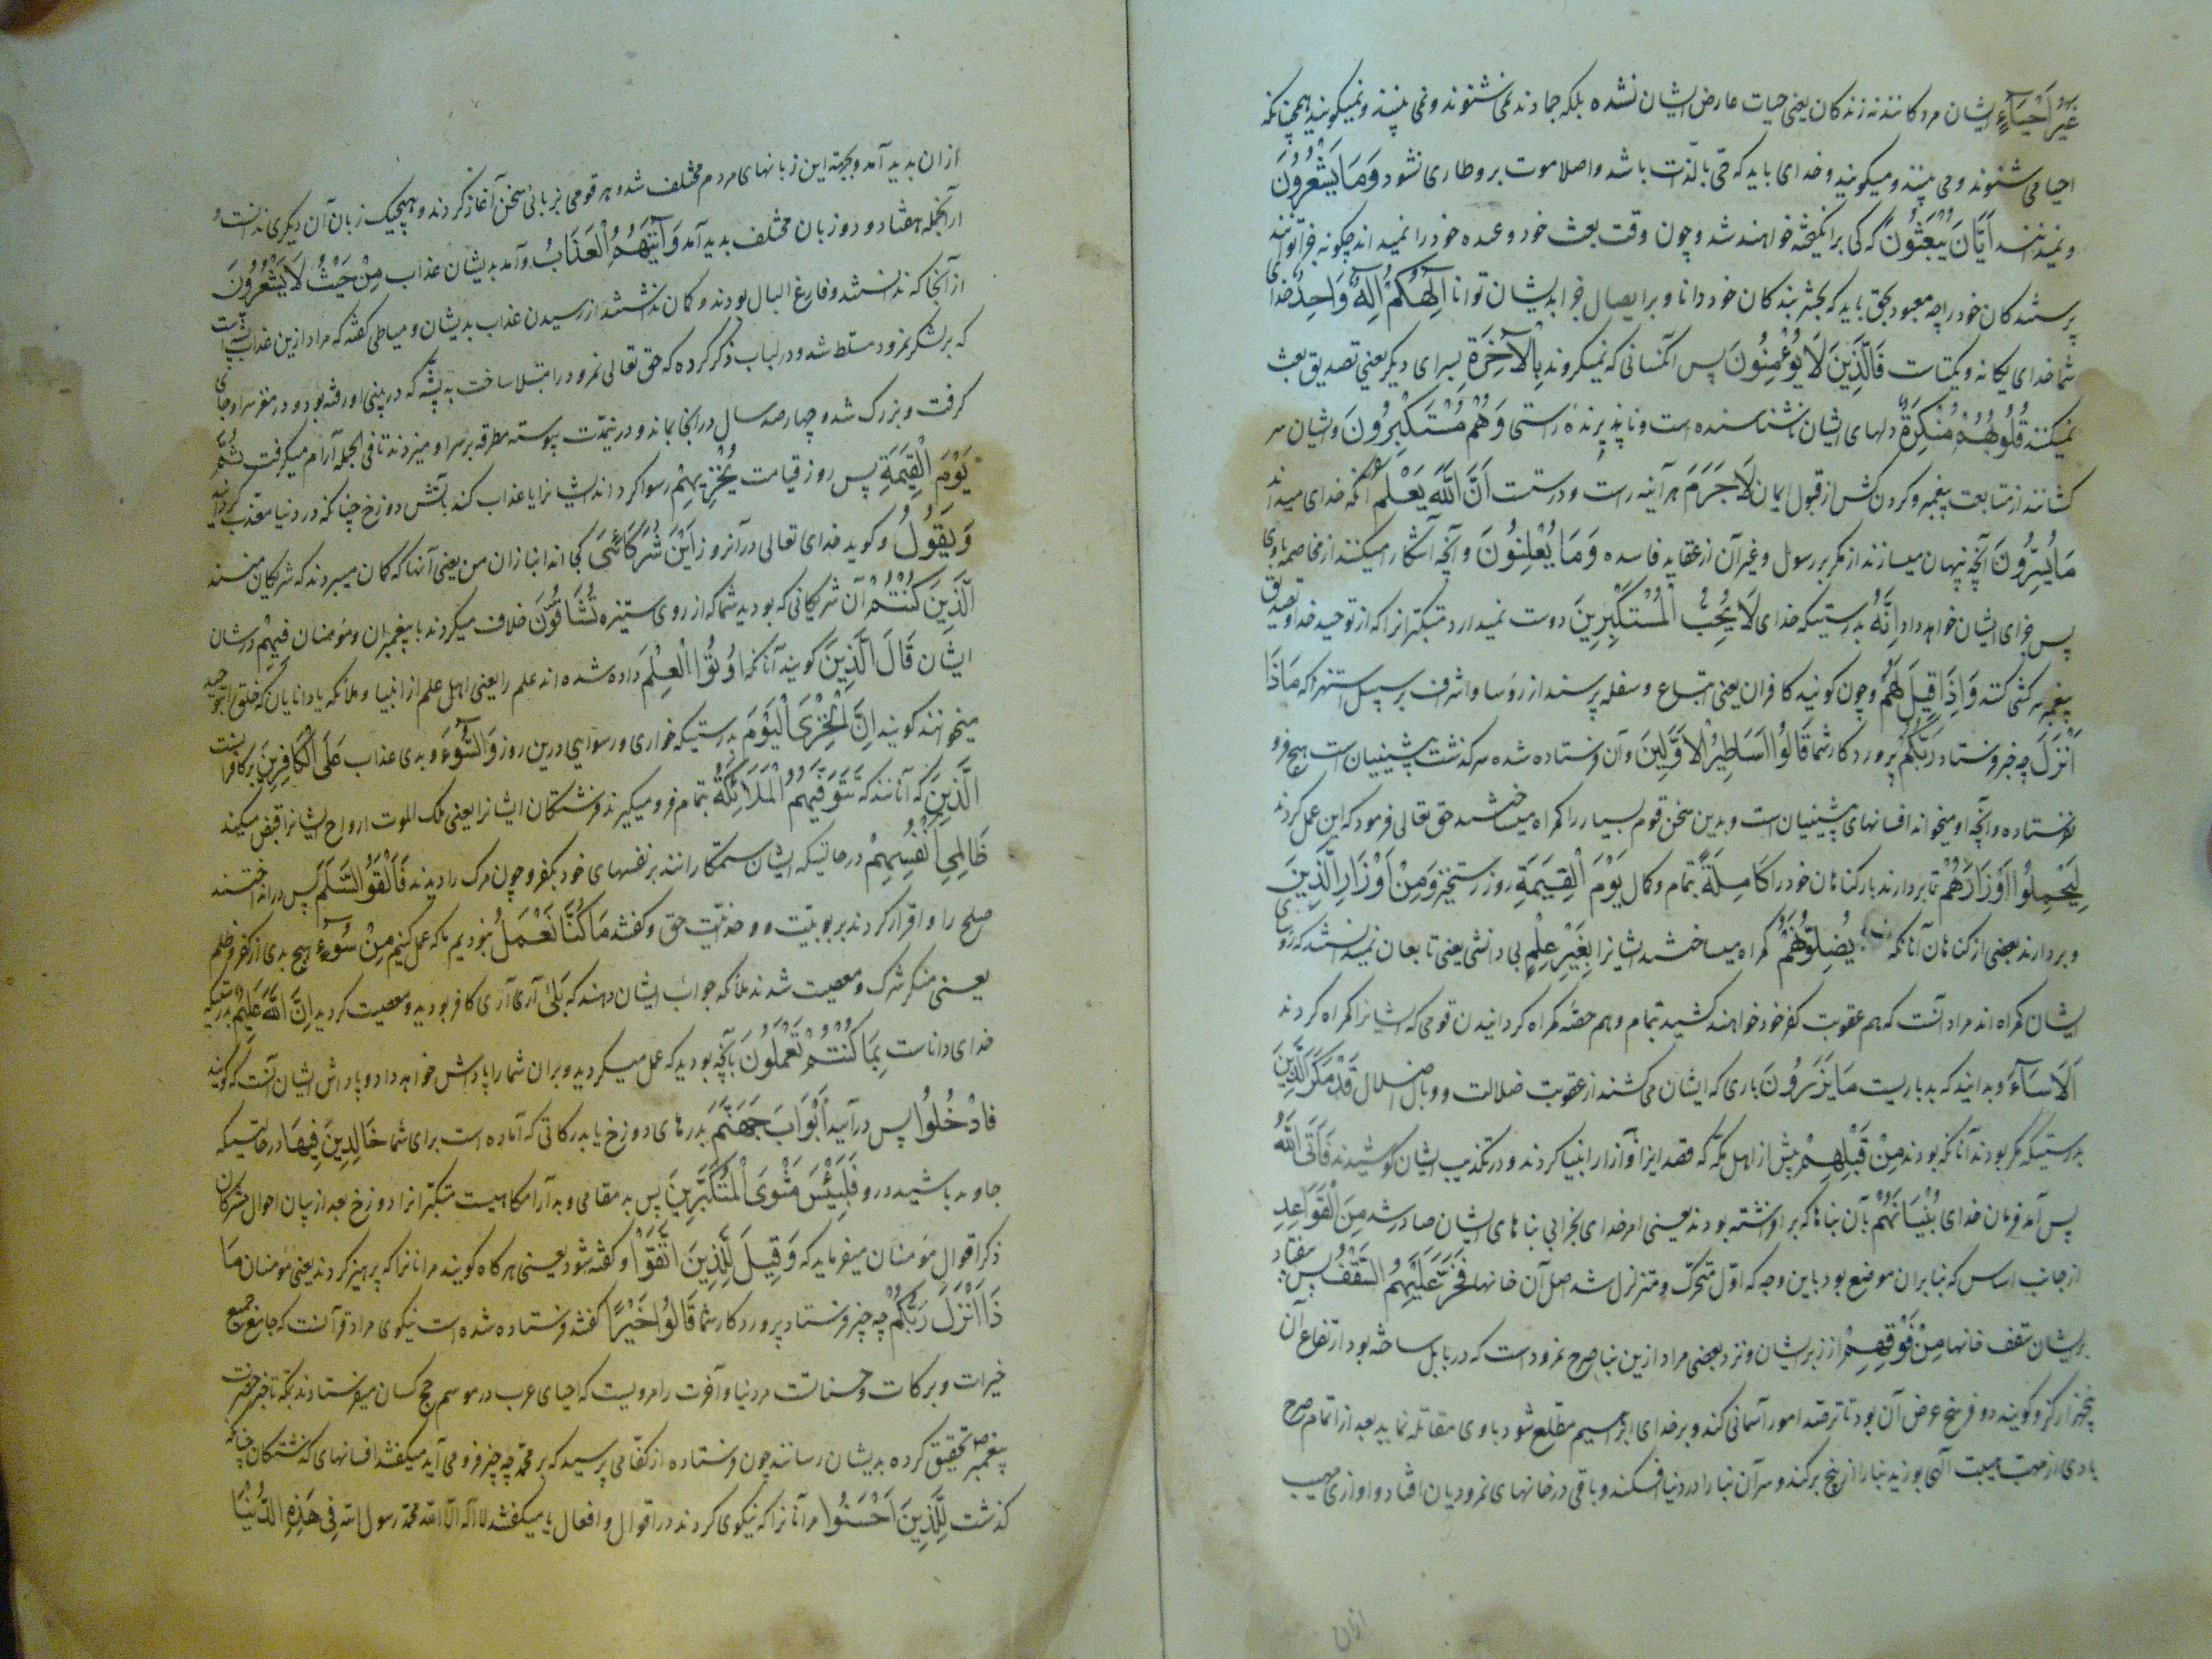 غَيْرُ اَحْيَآءٍ ایشان مردکانند نه زندکان یعنی حیات عارض ایشان نشده بلکه جمادند نمی شنوند و نمی بینند و نمیکویند همچنانکه
احیا می شنوند و می بینند و میکویند و خدای باید که حی بالذات باشد و اصلا موت برو طاری نشود وَمَا يَشْعُرُونَ
و نمیدانند اَيَّانَ يُبْعَثُونَ که کی برانکیخته خواهند شد و چون وقت بعث خود و عبده خود را نمیدانند چکونه جزا توانند
پرستندکان خود را چه معبود بحق باید که بحشر بندکان خود دانا و بر ایصال جزا بدیشان توانا اِلٰهُكُمْ اِلٰهٌ وَاحِدٌ خدای
شما خدای یکانه و یکتاست فَالَّذِينَ لَا يُؤْمِنُونَ پس آنکسانی که نمیکروند بِالْآخِرَةِ بسرای دیکر یعنی تصدیق بعث
نمیکنند قُلُوبُهُمْ مُنْكِرَةٌ دلهای ایشان ناشناسنده است و ناپذیرنده راستی وَهُمْ مُسْتَكْبِرُونَ و ایشان سر
کشانند از متابعت پیغمبر و کردن کش از قبول ایمان لَا جَرَمَ هر آینه راست و درست اَنَّ اللهَ يَعْلَمُ آنکه خدای میداند
مَا يُسِرُّونَ آنچه پنهان میسازند از مکر بر رسول و غیر آن از عقاید فاسده وَمَا يُعْلِنُونَ و آنچه آشکار میکنند از مخاصمه با وی
پس جزای ایشان خواهد داد اِنَّهُ بدرستیکه خدای لَا يُحِبُّ الْمُسْتَكْبِرِينَ دوست نمیدارد متکبرانرا که از توحید خدا و تصدیق
پیغمبر سرکشی کنند وَاِذَا قِيلَ لَهُمْ و چون کویند کافران یعنی اتباع و سفله پرسند از رؤسا و اشراف بر سبیل استهزا که مَاذَا
اَنْزَلَ چه چیز فرستاد رَبُّكُمْ پروردکار شما قَالُوا اَسَاطِيرُ الْاَوَّلِينَ و آن فرستاده شده سرکذشت پیشینیان است هیچ فرو
نفرستاده و آنچه او میخواند افسانهای پیشینیان است و بدین سخن قوم بسیار را کمراه میساختند حق تعالی فرمود که این عمل کردند
لِيَحْمِلُوا اَوْزَارَهُمْ تا بردارند بار کناهان خود را كَامِلَةً بتمام و کمال يَوْمَ الْقِيٰمَةِ روز رستخیز وَمِنْ اَوْزَارِ الَّذِينَ
و بردارند بعضی از کناهان آنانکه يُضِلُّونَهُمْ کمراه میساختند ایشانرا بِغَيْرِ عِلْمٍ بی دانشی یعنی تابعان نمیدانستند که رؤسای
ایشان کمراه اند مراد آنست که هم عقوبت کفر خود خواهند کشید بتمام و هم حصه کمراه کردانیدن قومی که ایشانرا کمراه کردند
اَلَا سَآءَ و بدانید که بد باریست مَا يَزِرُونَ باری که ایشان می کشند از عقوبت ضلالت و وبال اضلال قَدْ مَكَرَ الَّذِينَ
بدرستیکه مکر بودند آنانکه بودند مِنْ قَبْلِهِمْ پیش از اهل مکه که قصد ایزا و آزار انبیا کردند و در تکذیب ایشان کوشیدند فَاَتَى اللهُ
پس آمد فرمان خدای بُنْيَانَهُمْ بآن بناها که برافراشته بودند یعنی امر خدای بخرابی بناهای ایشان صادر شد مِنَ الْقَوَاعِدِ
از جانب اساس که بنا بران موضع بود باین وجه که اول متحرک و متزلزل شد اصل آن خانها فَخَرَّ عَلَيْهِمُ السَّقْفُ پس بیفتاد
بریشان سقف خانها مِنْ فَوْقِهِمْ از زبر ایشان و نزد بعضی مراد ازین بنا صرح نمرود است که در بابل ساخته بود ارتفاع آن
پنجهزار کز و کویند دو فرسخ عرض آن بود تا ترصد امور آسمانی کند و بر خدای ابراهیم مطلع شود با وی مقاتله نماید بعد از اتمام صرح
بادی از مهب هیبت الهی بوزید بنا را از بیخ برکند و سر آن بنا را در دریا افکند و باقی در خانهای نمرودیان افتاد و اوازی مهیب
ازان
ازان بدید آمد و بجهة این زبانهای مردم مختلف شد و هر قومی بزبانی سخن آغاز کردند و هیچیک زبان آن دیکری ندانست و
ازانجمله هفتاد و دو زبان مختلف بدید آمد وَاَتٰيهُمُ الْعَذَابُ و آمد بدیشان عذاب مِنْ حَيْثُ لَا يَشْعُرُونَ
از آنجا که ندانستند و فارغ البال بودند و کمان نداشتند از رسیدن عذاب بدیشان و میاطی کفته که مراد ازین عذاب پشه است
که بر لشکر نمرود مسلط شد و در لباب ذکر کرده که حق تعالی نمرود را مبتلا ساخت به پشه که در بینی او رفته بود و در مغز سر او جای
کرفت و بزرک شد و چهارصد سال در انجا بماند و درینمدت پیوسته مطرقه بر سر او میزدند تا فی الجمله آرام میکرفت ثُمَّ
يَوْمَ الْقِيٰمَةِ پس روز قیامت يُخْزِيهِمْ رسوا کرداند ایشانرا یا عذاب کند بآتش دوزخ چنانکه در دنیا معذب کردانید
وَيَقُولُ و کوید خدای تعالی در آنروز اَيْنَ شُرَكَآئِىَ کجا اند انبازان من یعنی آنها که کمان میبردند که شریکان منند
الَّذِينَ كُنْتُمْ آن شریکانی که بودید شما که از روی ستیزه تُشَآقُّونَ خلاف میکردند با پیغمبران و مؤمنان فِيهِمْ در شان
ایشان قَالَ الَّذِينَ کویند آنانکه اُوتُوا الْعِلْمَ داده شده اند علم را یعنی اهل علم از انبیا و ملائکه یا دانایان که خلق را بتوحید
میخواندند کویند اِنَّ الْخِزْىَ الْيَوْمَ بدرستیکه خواری و رسوایی درین روز وَالسُّوٓءَ و بدی عذاب عَلَى الْكَافِرِينَ بر کافرانست
الَّذِينَ که آنانند که تَتَوَفّٰيهُمُ الْمَلَآئِكَةُ بتمام فرو میکیرند فرشتکان ایشانرا یعنی ملک الموت ارواح ایشانرا قبض میکند
ظَالِمِىٓ اَنْفُسِهِمْ در حالتیکه ایشان ستمکارانند بر نفسهای خود بکفر و چون مرک را دیدند فَاَلْقَوُا السَّلَمَ پس در انداختند
صلح را و اقرار کردند بربوبیت و وحدانیت حق و کفتند مَا كُنَّا نَعْمَلُ نبودیم ما که عمل کنیم مِنْ سُوٓءٍ هیچ بدی از کفر و ظلم
یعنی منکر شرک و معصیت شدند ملائکه جواب ایشان دهند که بَلٰى آری آری کافر بودید و معصیت کردید اِنَّ اللهَ عَلِيمٌ بدرستیکه
خدای داناست بِمَا كُنْتُمْ تَعْمَلُونَ بآنچه بودید که عمل میکردید و بران شما را پاداش خواهد داد و پاداش ایشان آنست که کویند
فَادْخُلُوا پس درآیید اَبْوَابَ جَهَنَّمَ بدرهای دوزخ یا بدرکاتی که آماده است برای شما خَالِدِينَ فِيهَا در حالتیکه
جاوید باشید درو فَلَبِئْسَ مَثْوَى الْمُتَكَبِّرِينَ پس بد مقامی و بد آرامکاهیست متکبرانرا دوزخ بعد از بیان احوال مشرکان
ذکر اقوال مؤمنان میفرماید که وَقِيلَ لِلَّذِينَ اتَّقَوْا و کفته شود یعنی هرکاه کویند مر آنانرا که پرهیز کردند یعنی مؤمنان مَا
ذَا اَنْزَلَ رَبُّكُمْ چه چیز فرستاد پروردکار شما قَالُوا خَيْرًا کفتند فرستاده شده است نیکوی مراد قرآنست که جامع جمیع
خیرات و برکات و حسنات در دنیا و آخرت را مرویست که احیای عرب در موسم حج کسان میفرستادند بمکه تا خبر حضرت
پیغمبر تحقیق کرده بدیشان رسانند چون فرستاده از کفار می پرسید که بر محمد چه چیز فرو می آید میکفتند افسانهای کذشتکان چنانکه
کذشت لِلَّذِينَ اَحْسَنُوا مر آنانرا که نیکوی کردند در اقوال و افعال یا میکفتند لا اله الا الله محمد رسول الله فِى هٰذِهِ الدُّنْيَا